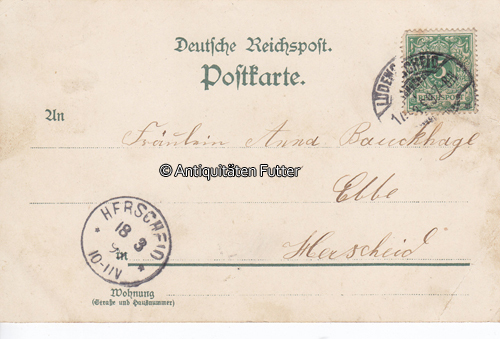 Deutsche Reichspost.
Postkarte.
LÜDENSCHEID
5
REICHSPOST
An
Fräulein Anna Bauckhage
© Antiquitäten Futter
Ebbe
Herscheid
* HERSCHEID *
18 3
10-11V
Wohnung
(Straße und Hausnummer)